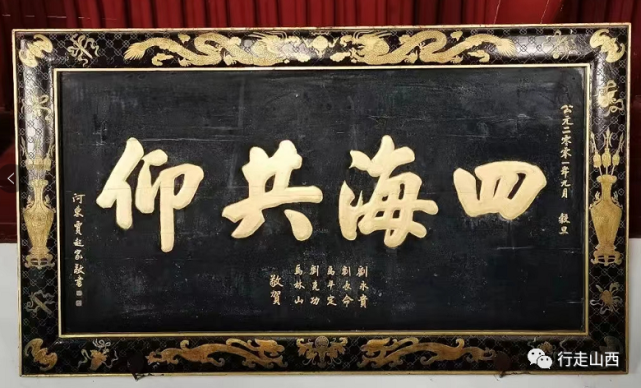 公元二零零一年九月 穀旦
四海共仰
劉永貴
劉長命
馬平定
劉克功
馬林山
敬賀
河東賈起家敬書
行走山西